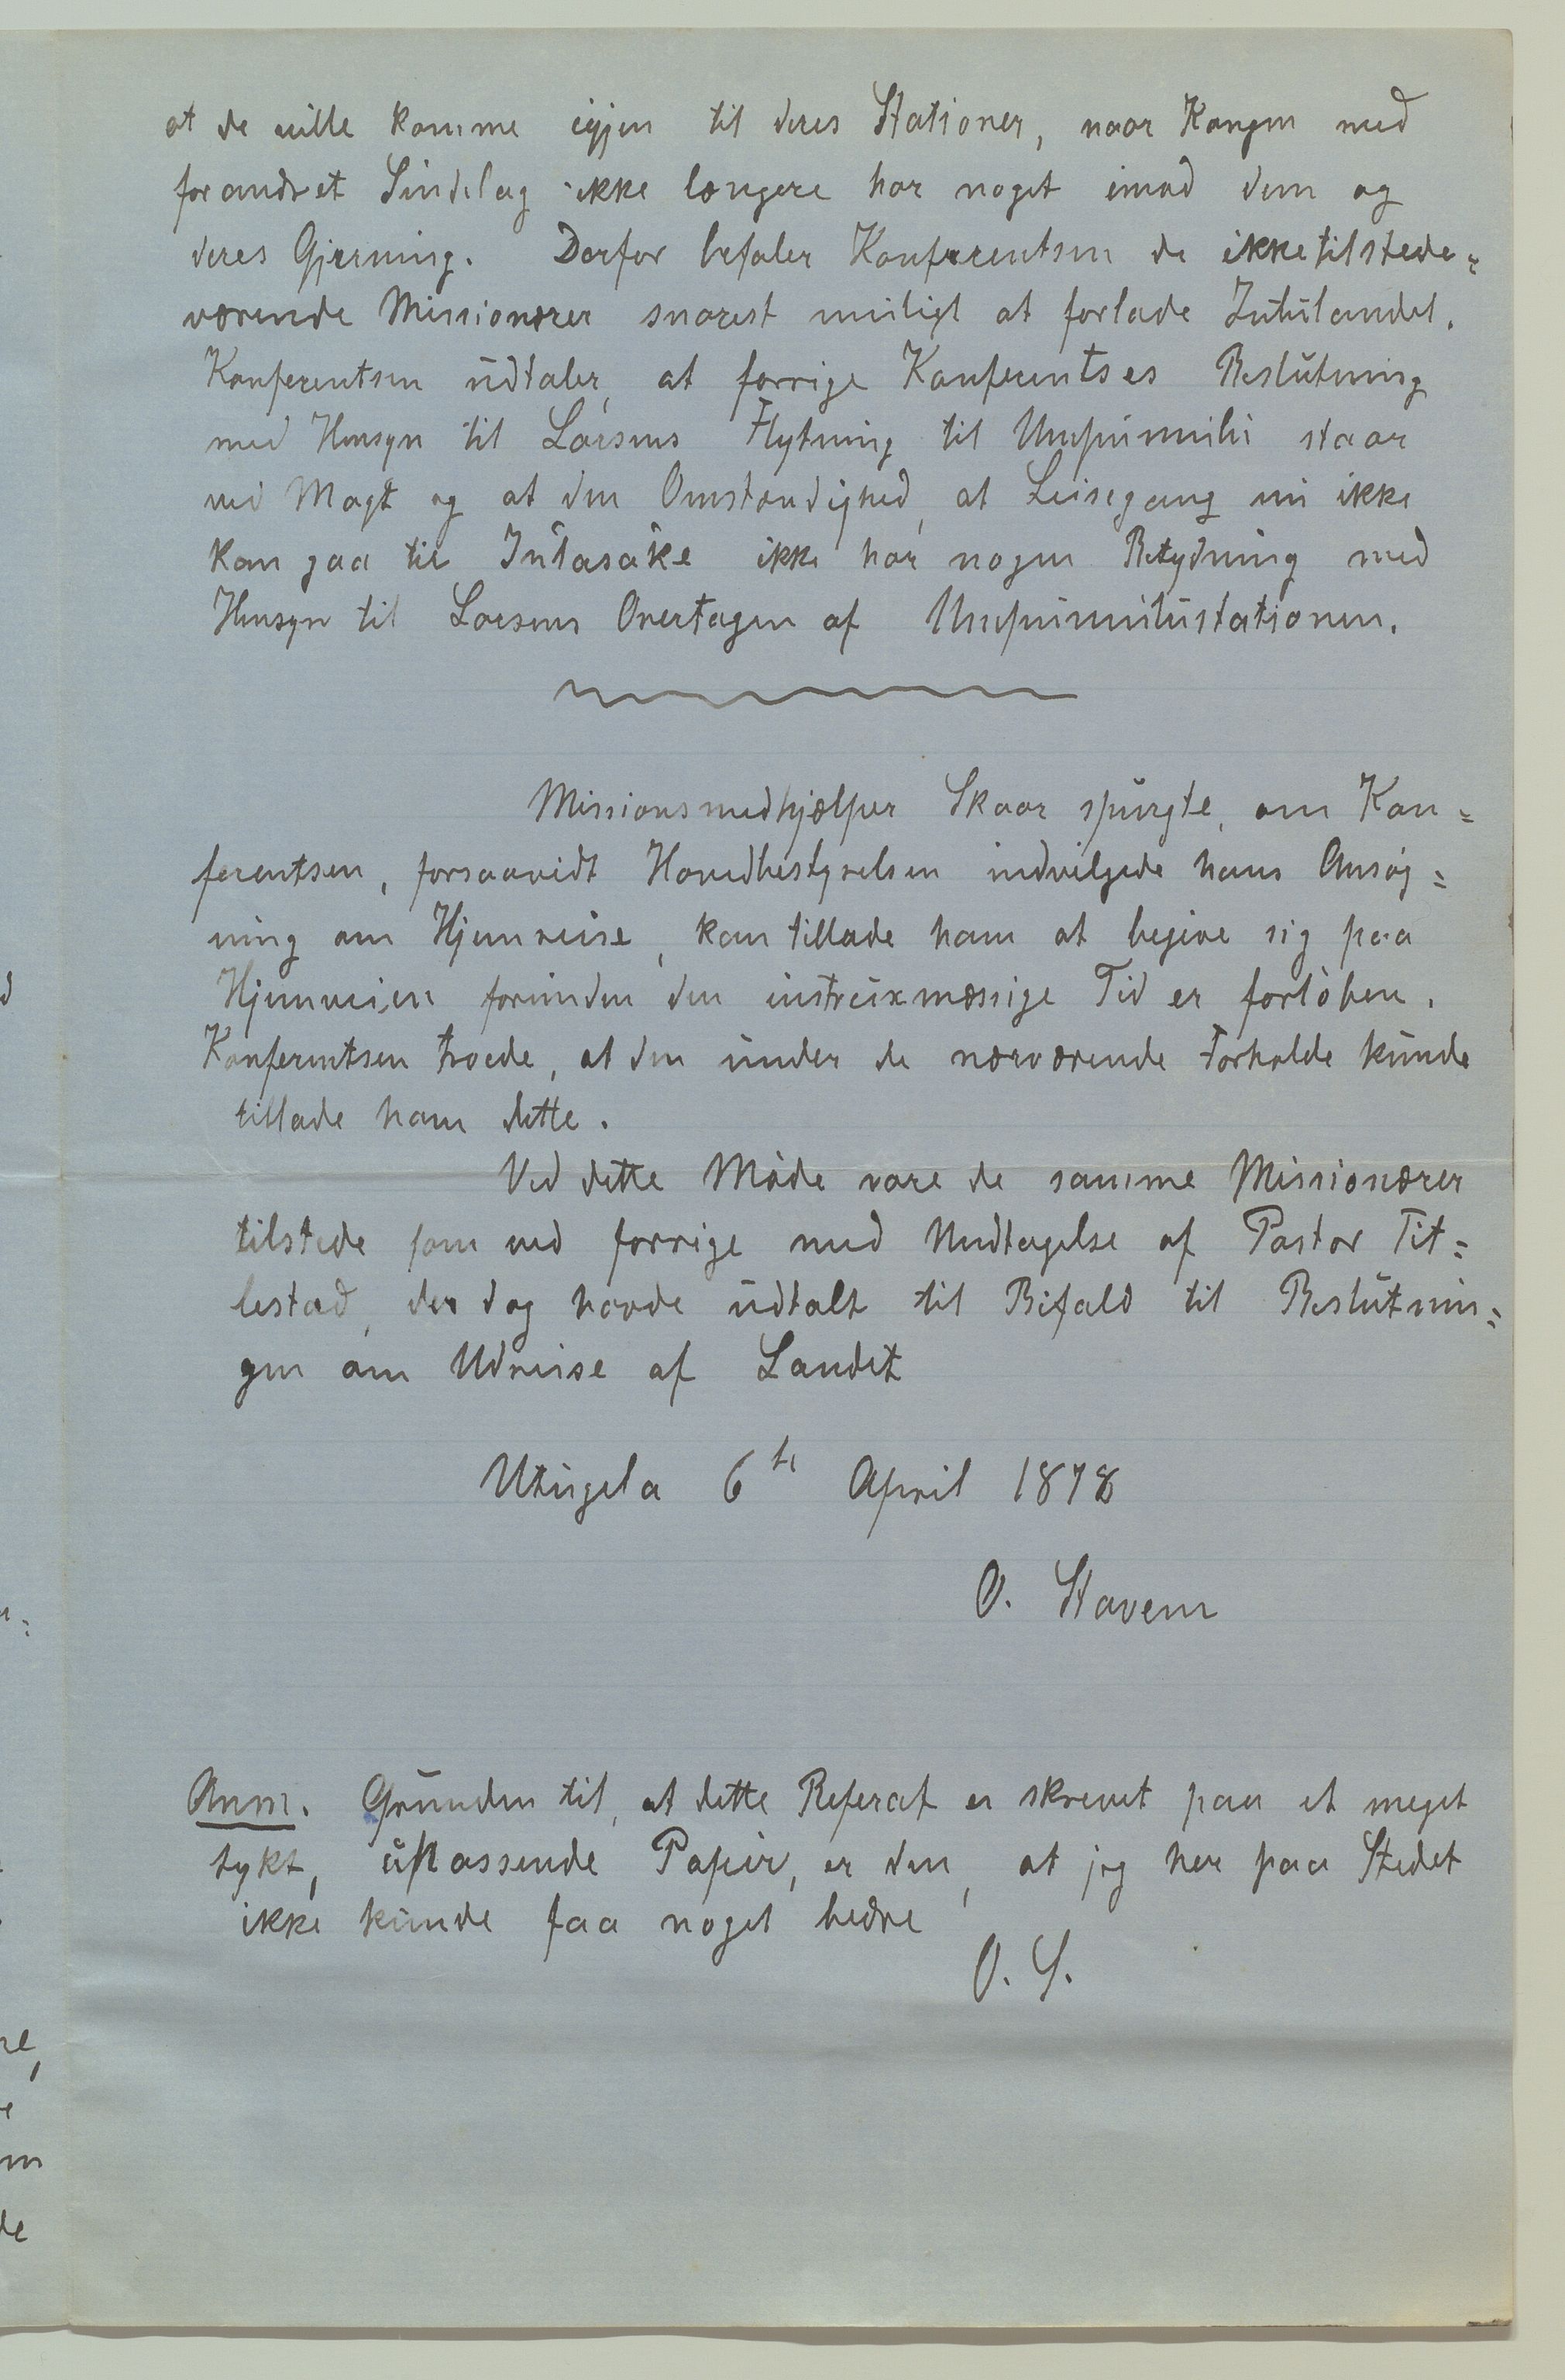 at de ville komme igjen til deres Stationer, naar Kongen med
forandret Sindelag ikke længere har noget imod dem og
deres Gjerning. Derfor befaler Konferentsen de ikke tilstede=
værende Missionærer snarest muligt at forlade Zululandet.
Konferentsen udtaler, at forrige Konferentses Beslutning
med Hensyn til Larsens Flytning til Umpumulu staar
ved Magt og at den Omstændighed, at Leisegang nu ikke
kan gaa til Inlasake ikke har nogen Betydning med
Hensyn til Larsens Overtagen af Umpumulustationen.
Missionsmedhjælper Skaar spurgte, om Kon=
ferentsen, forsaavidt Hovedbestyrelsen indvilgede hans Ansøg=
ning om Hjemreise, kan tillade ham at begive sig paa
Hjemveien forinden den instruxmæssige Tid er forløben.
Konferentsen troede, at den under de nærværende Forholde kunde
tillade ham dette.
Ved dette Møde vare de samme Missionærer
tilstede som ved forrige med Undtagelse af Pastor Tit=
lestad, der dog havde udtalt til Bifald til Beslutnin=
gen om Udreise af Landet
Utugela 6te April 1878
O. Stavem
Anm. Grunden til, at dette Referat er skrevet paa et meget
tykt, upassende Papir, er den, at jeg her paa Stedet
ikke kunde faa noget bedre
O. S.